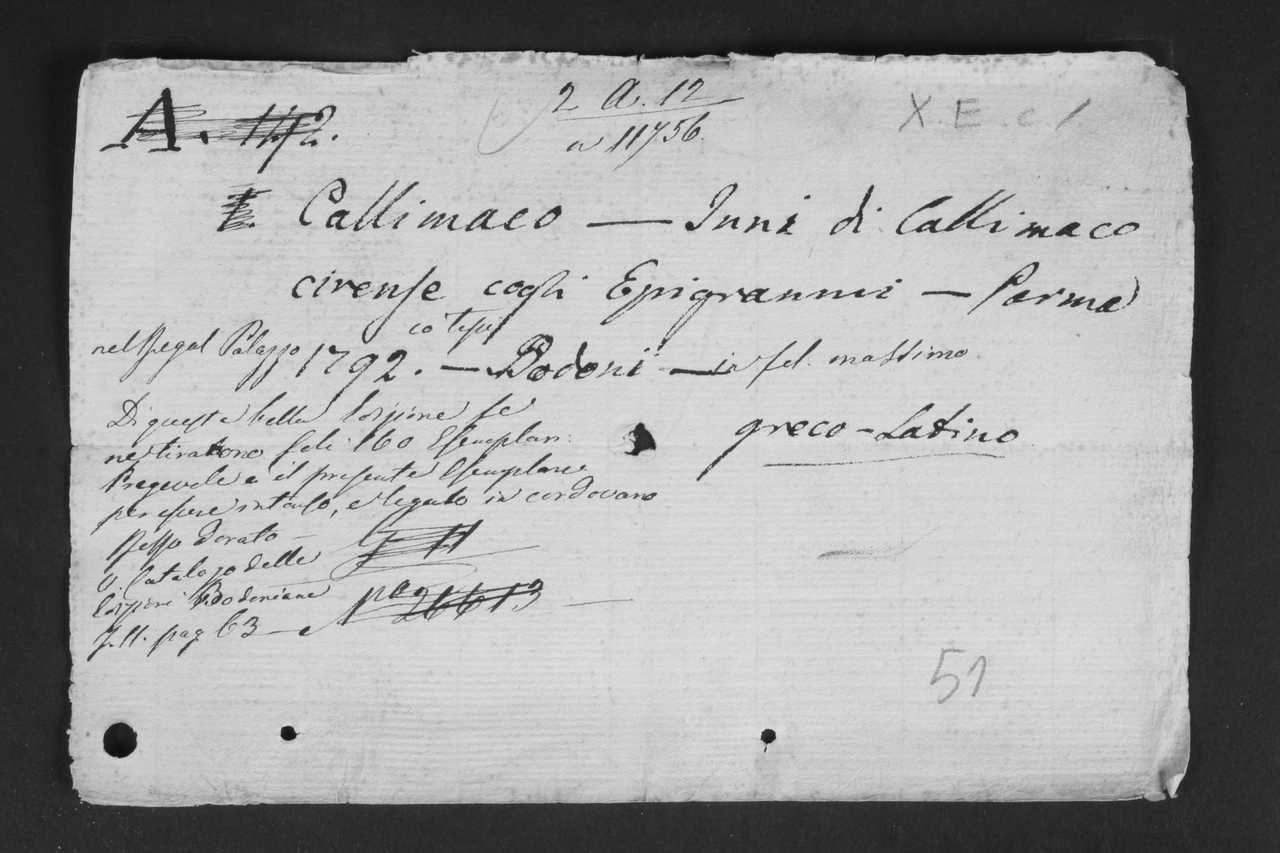 A. 142.
2 A. 12
a 11756.
X. E. c 1
Callimaco — Inni di Callimaco
cirense cogli Epigrammi — Parma
nel Regal Palazzo 1792. — co tipi Bodoni — in fol. massimo
greco-Latino
Di questa bella Edizione se
ne tirarono soli 160 Esemplari:
Pregevole è il presente Esemplare
per essere intonso, e legato in cordovano
dorato —
V. Catalogo delle
Edizioni Bodoniane
T. II. pag 63 —
51